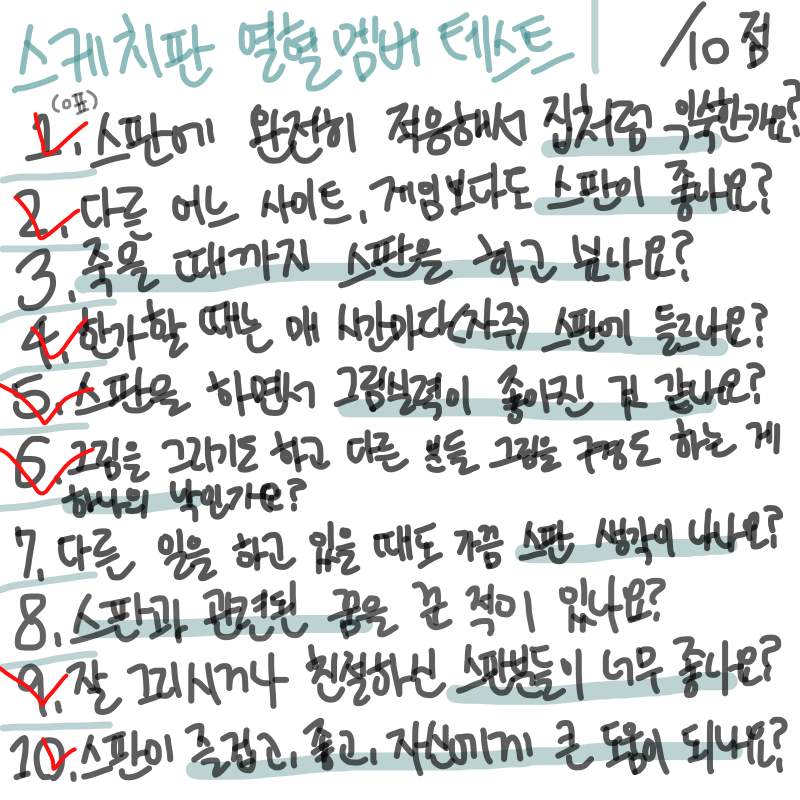 스케치판 열혈멤버 테스트 /10점
(어푸)
1. 스판에 완전히 적응해서 집처럼 익숙한가요?
2. 다른 어느 사이트, 게임보다도 스판이 좋나요?
3. 죽을 때까지 스판을 하고 싶나요?
4. 한가할 때는 매 시간마다(자주) 스판에 들르나요?
5. 스판을 하면서 그림실력이 좋아진 것 같나요?
6. 그림을 그리기도 하고 다른 분들 그림을 구경도 하는 게
하나의 낙인가요?
7. 다른 일을 하고 있을 때도 가끔 스판 생각이 나나요?
8. 스판과 관련된 꿈을 꾼 적이 있나요?
9. 잘 그리시거나 친절하신 스판분들이 너무 좋나요?
10. 스판이 즐겁고, 좋고, 자신에게 큰 도움이 되나요?